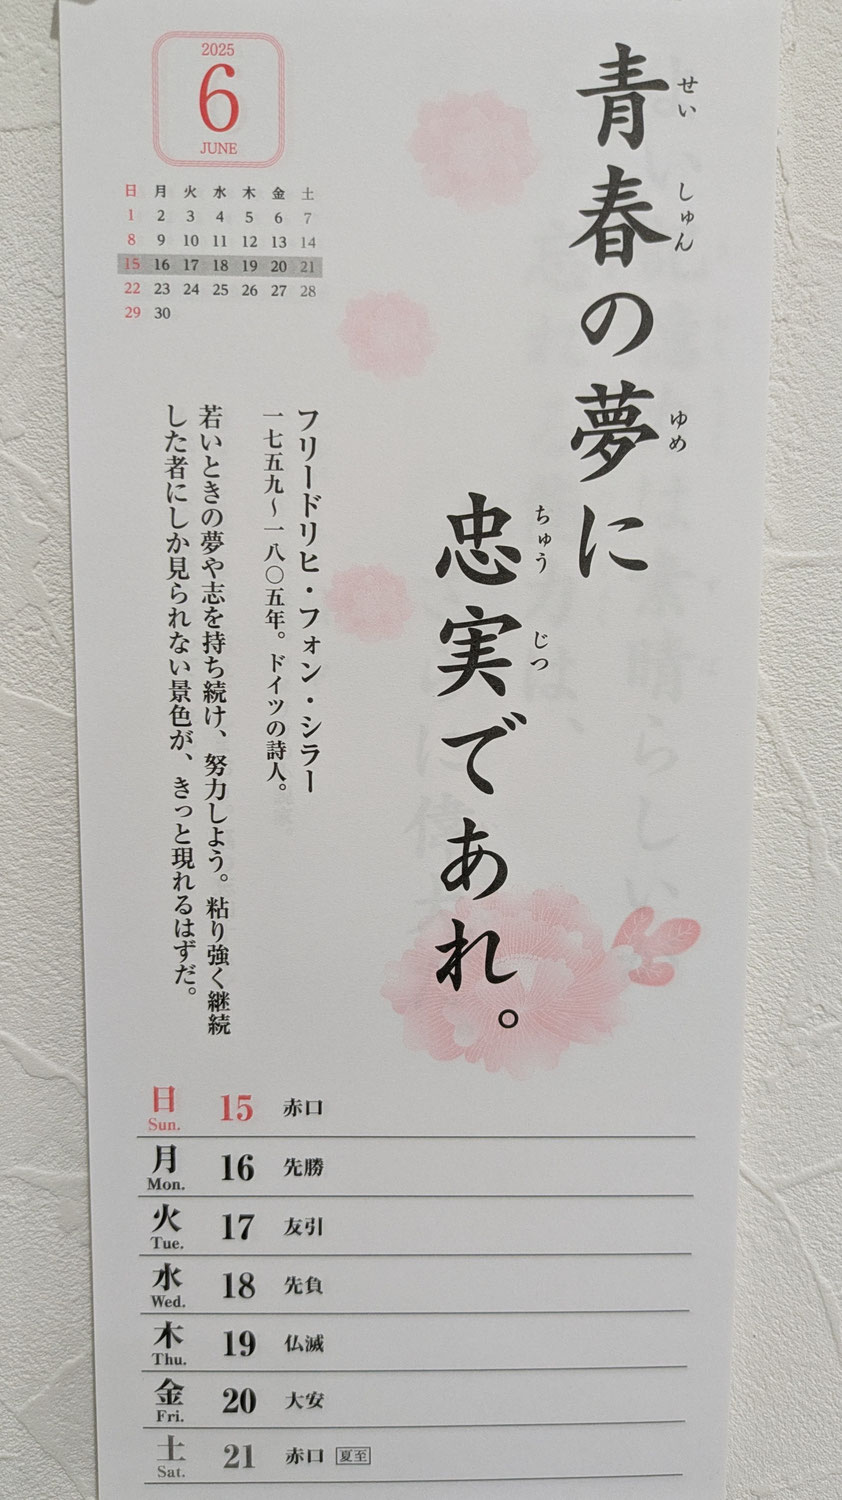 2025
6
JUNE
日 月 火 水 木 金 土
1 2 3 4 5 6 7
8 9 10 11 12 13 14
15 16 17 18 19 20 21
22 23 24 25 26 27 28
29 30
青春の夢に
せい しゅん ゆめ
忠実であれ。
ちゅう じつ
フリードリヒ・フォン・シラー
一七五九〜一八〇五年。ドイツの詩人。
若いときの夢や志を持ち続け、努力しよう。粘り強く継続
した者にしか見られない景色が、きっと現れるはずだ。
日 Sun. 15 赤口
月 Mon. 16 先勝
火 Tue. 17 友引
水 Wed. 18 先負
木 Thu. 19 仏滅
金 Fri. 20 大安
土 Sat. 21 赤口 夏至